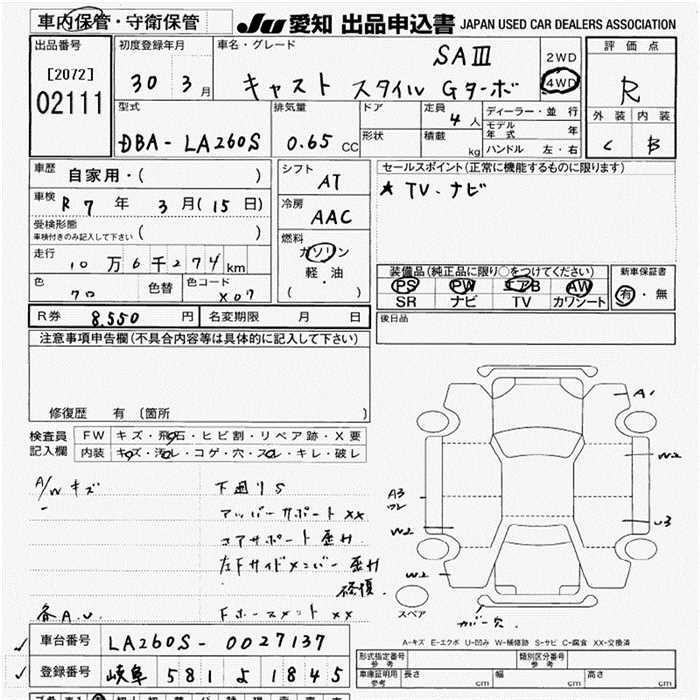 車内保管・守衛保管
JU 愛知 出品申込書 JAPAN USED CAR DEALERS ASSOCIATION
出品番号
[2072]
02111
初度登録年月
30 3月
車名・グレード
SAⅢ
キャスト スタイル Gターボ
2WD
4WD
評価点
R
外装 内装
C B
型式
DBA- LA260S
排気量
0.65 CC
ドア
形状
定員
4人
積載
kg
ディーラー・並行
モデル年式 年
ハンドル 左・右
車歴
自家用・( )
車検
R7年 3月(15日)
受検形態
車検付きのみ記入して下さい ( )
走行
10万6千274km
色
クロ
色替
色コード
X07
シフト
AT
冷房
AAC
燃料
ガソリン
軽・油
( )
セールスポイント(正常に機能するものに限ります)
★TV、ナビ
装備品(純正品に限り○をつけてください)
PS PW エアB AW
SR ナビ TV カワシート
新車保証書
有・無
R券 8.550円
名変期限 月 日
後日品
注意事項申告欄(不具合内容等は具体的に記入して下さい)
修復歴 有 〔箇所 〕
検査員記入欄
FW キズ・飛石・ヒビ割・リペア跡・X要
内装 キズ・汚れ・コゲ・穴・スレ・キレ・破レ
A/Wキズ
下廻りS
アッパーサポートXX
コアサポート歪ミ
左Fサイドメンバー歪ミ
修復
各A.U.
FホースメントXX
A1
W2
A3
U3
W2
W2
スペア
カバー欠
A-キズ E-エクボ U-凹み W-補修跡 S-サビ C-腐食 XX-交換済
車台番号 LA260S-0027137
登録番号 岐阜 581 よ 1845
形式指定番号 参考
類別区分番号 参考
車庫証明用 参考
長さ cm
幅 cm
高さ cm